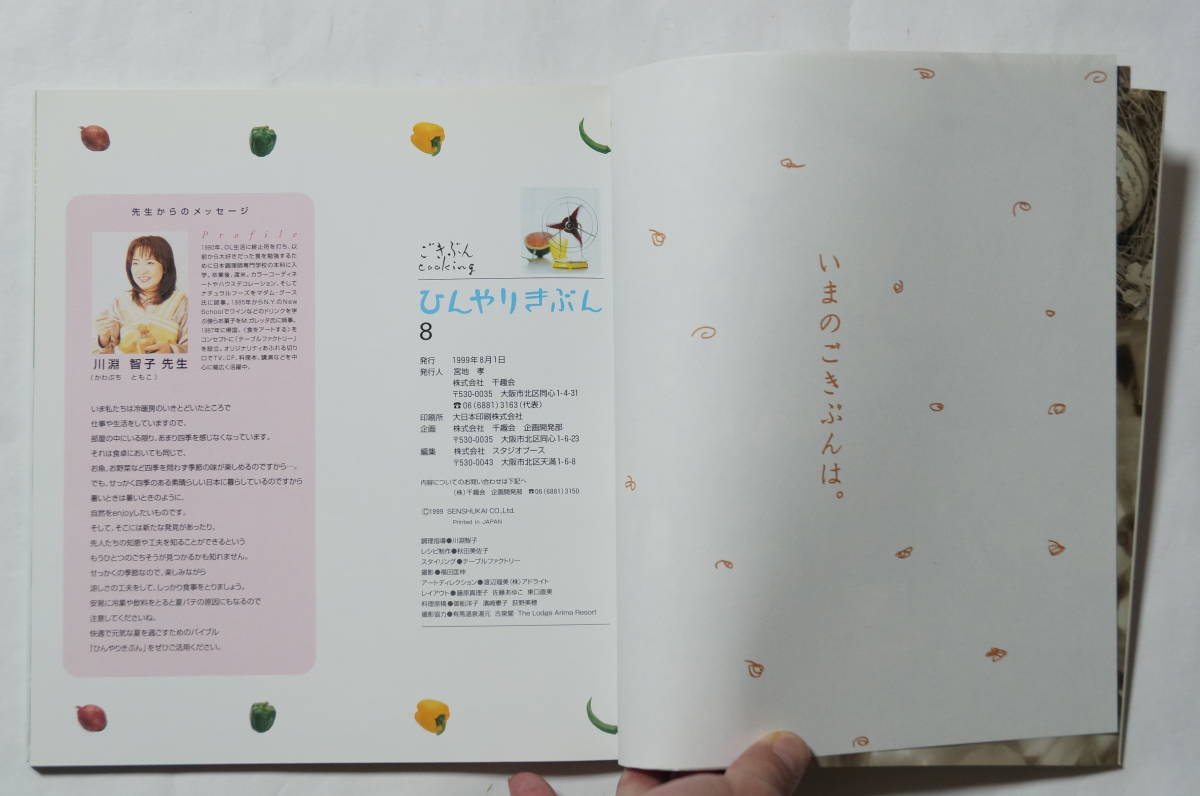 先生からのメッセージ
Profile
1980年、OL生活に終止符を打ち、以
前から大好きだった食を勉強するた
めに日本調理師専門学校の本科に入
学。卒業後、渡米。カラーコーディネ
ートやハウスデコレーション、そして
ナチュラルフーズをマダム・グース
氏に師事。1985年からN.Y.のNew
Schoolでワインなどのドリンクを学
び傍らお菓子をM.ガレッタ氏に師事。
1987年に帰国。《食をアートする》を
コンセプトに「テーブルファクトリー」
を設立。オリジナリティあふれる切り
口でTV、CF、料理本、講演などを中
心に幅広く活躍中。
川淵 智子 先生
(かわぶち ともこ)
いま私たちは冷暖房のいきとどいたところで
仕事や生活をしていますので、
部屋の中にいる限り、あまり四季を感じなくなっています。
それは食卓においても同じで、
お魚、お野菜など四季を問わず季節の味が楽しめるのですから…。
でも、せっかく四季のある素晴らしい日本に暮らしているのですから
暑いときは暑いときのように、
自然をenjoyしたいものです。
そして、そこには新たな発見があったり、
先人たちの知恵や工夫を知ることができるという
もうひとつのごちそうが見つかるかも知れません。
せっかくの季節なので、楽しみながら
涼しさの工夫をして、しっかり食事をとりましょう。
安易に冷菓や飲料をとると夏バテの原因にもなるので
注意してくださいね。
快適で元気な夏を過ごすためのバイブル
「ひんやりきぶん」をぜひご活用ください。
ごきぶん
cooking
ひんやりきぶん
8
発行 1999年8月1日
発行人 宮地 孝
株式会社 千趣会
〒530-0035 大阪市北区同心1-4-31
☎06(6881)3163(代表)
印刷所 大日本印刷株式会社
企画 株式会社 千趣会 企画開発部
〒530-0035 大阪市北区同心1-6-23
編集 株式会社 スタジオブース
〒530-0043 大阪市北区天満1-6-8
内容についてのお問い合わせは下記へ
(株)千趣会 企画開発部 ☎06(6881)3150
©1999 SENSHUKAI CO.,Ltd.
Printed in JAPAN
調理指導●川淵智子
レシピ制作●秋田美佐子
スタイリング●テーブルファクトリー
撮影●横田匡伸
アートディレクション●渡辺瑠美(株)アドライト
レイアウト●藤原真理子 佐藤あゆこ 東口直美
料理原稿●御船洋子 濱崎憲子 荻野美穂
撮影協力●有馬温泉湯元 古泉閣 The Lodge Arima Resort
いまのごきぶんは。